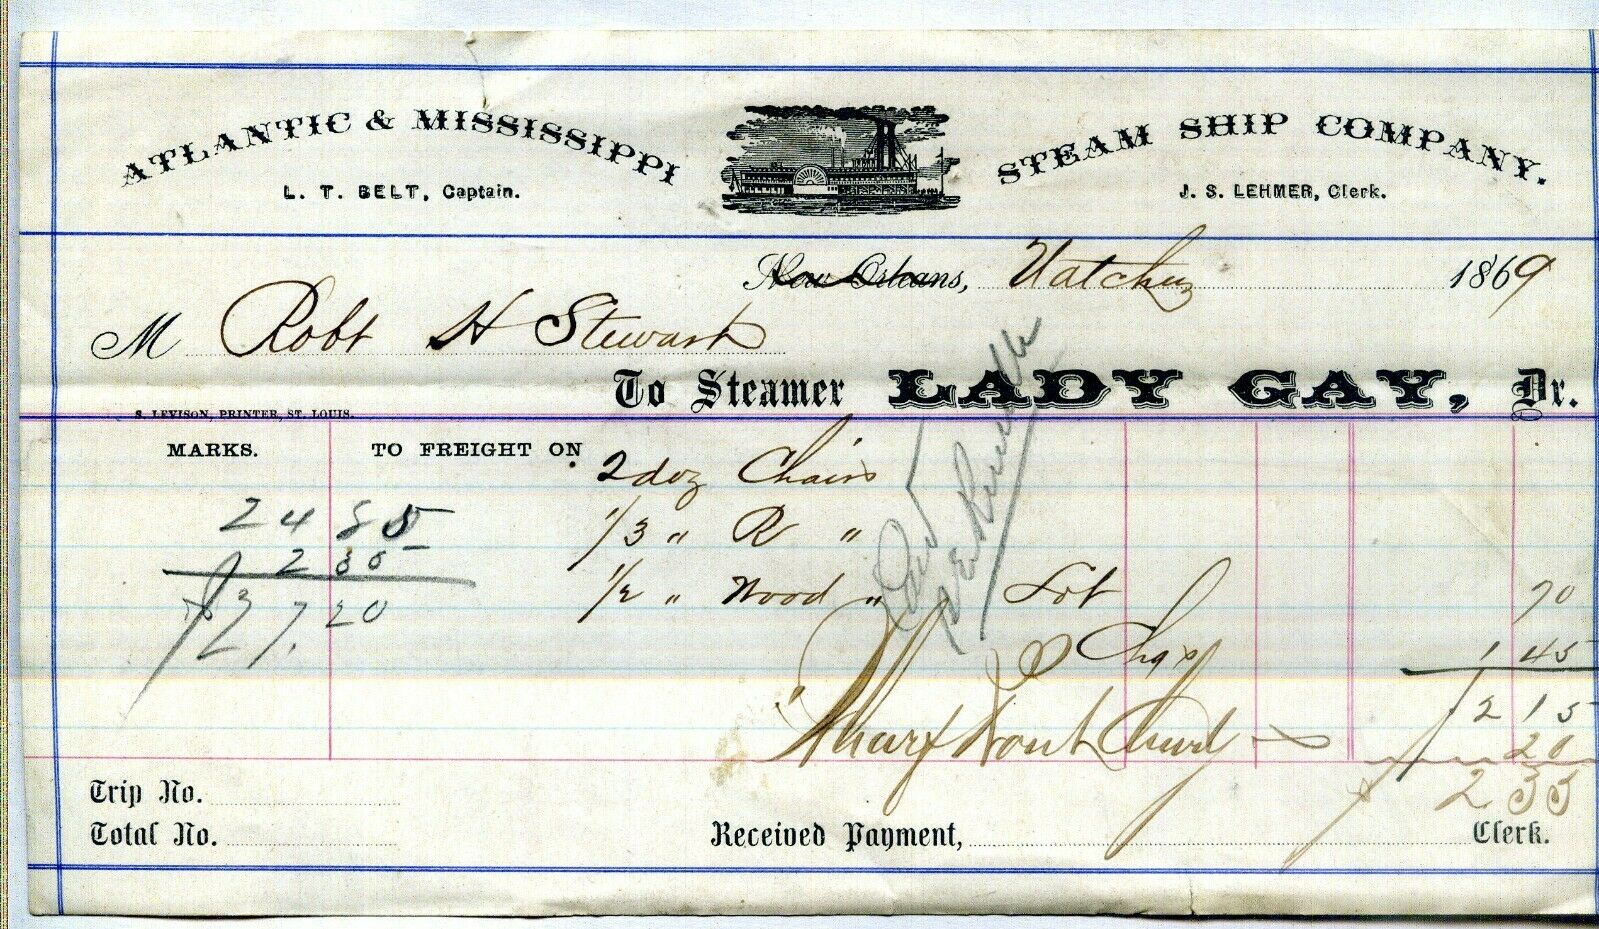 ATLANTIC & MISSISSIPPI STEAM SHIP COMPANY.
L. T. BELT, Captain. J. S. LEHMER, Clerk.
New Orleans, Natchez 1869
M Robt H Stewart
To Steamer LADY GAY, Dr.
S. LEVISON, PRINTER, ST. LOUIS.
MARKS. TO FREIGHT ON 2 doz Chairs
24 85
1/3 " R "
2 35
1/2 " Wood " Lot 70
$27.20
Chgs 1 45
2 15
20
2 35
Trip No.
Total No. Received Payment, Clerk.